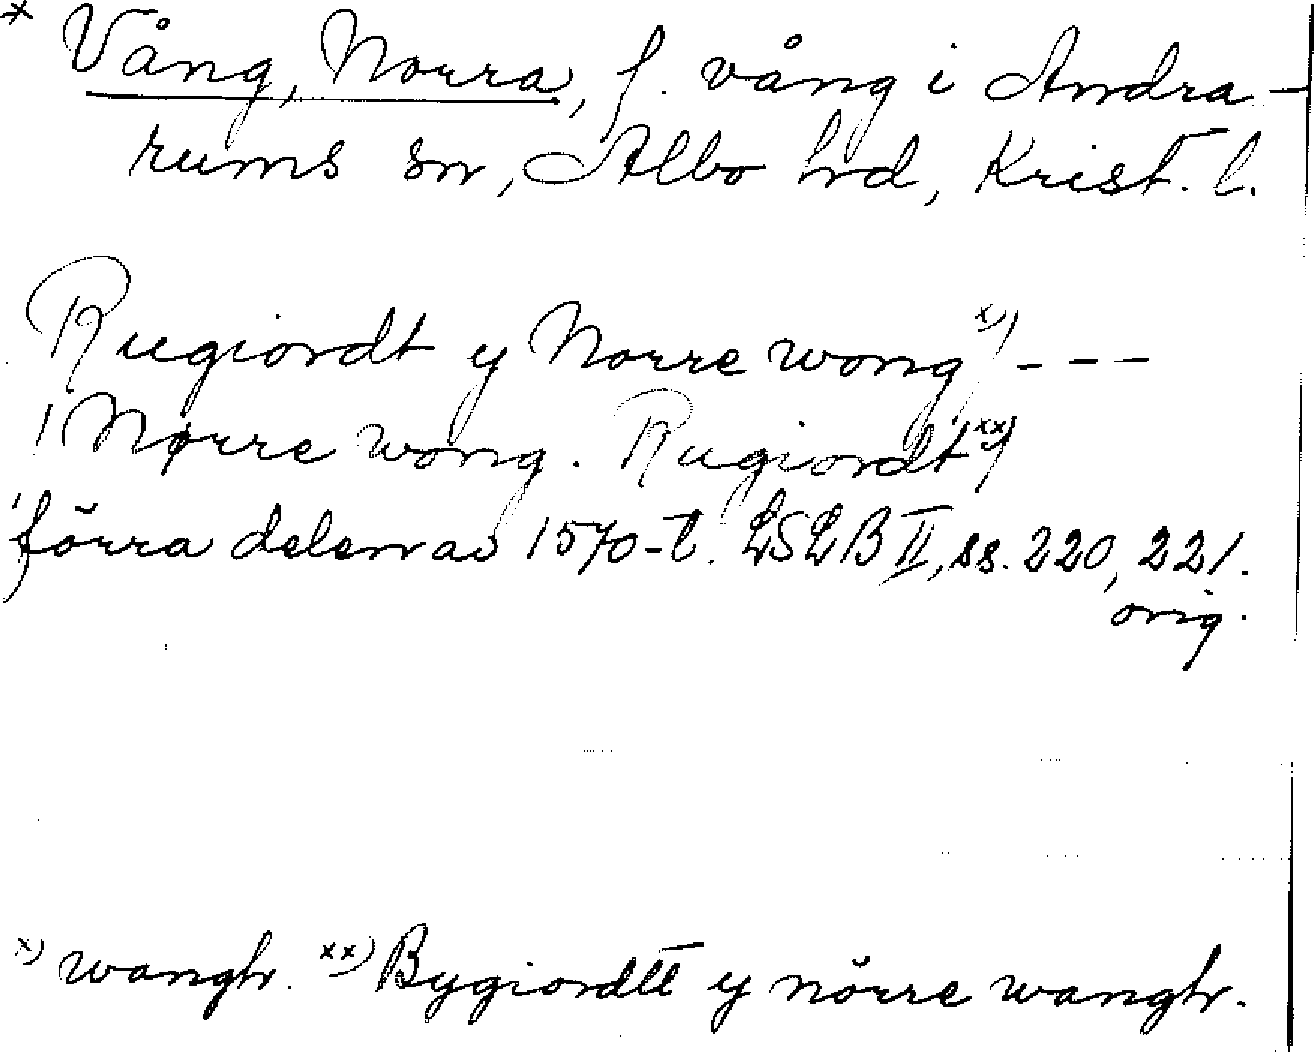 * Vång, Norra, f. vång i Andra-
rums sn, Albo hrd, Krist. l.
Rugiordt y Norre wong x) ---
Nørre wong. Rugiordt xx)
förra delen av 1570-t. LSLB II, ss. 220, 221.
orig.
x) wangh. xx) Bygiordtt y nörre wangh.